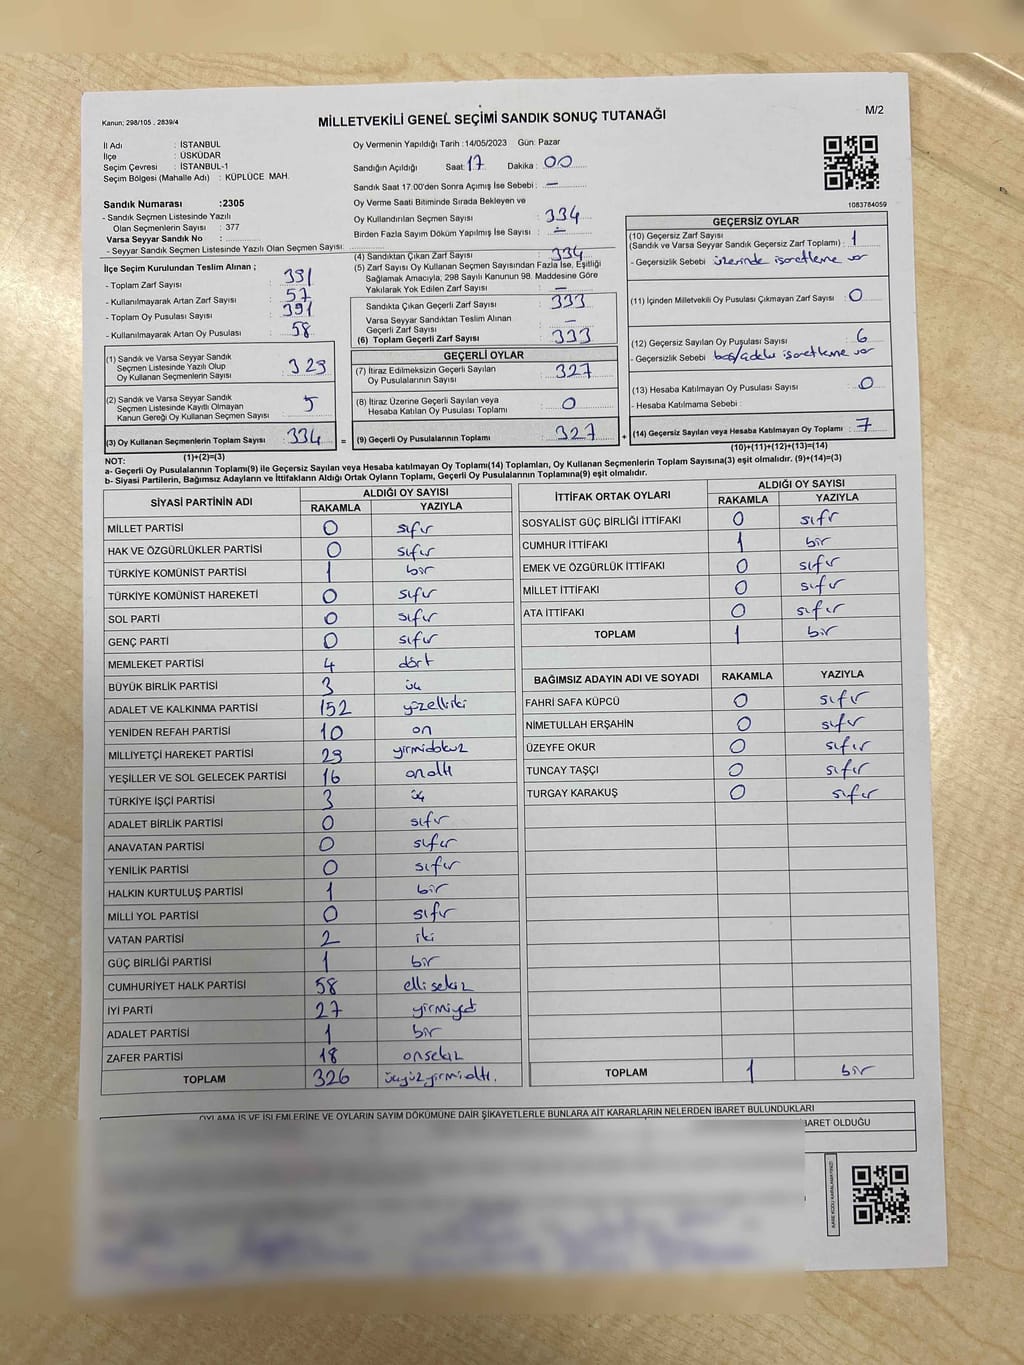 Kanun; 298/105 , 2839/4
MİLLETVEKİLİ GENEL SEÇİMİ SANDIK SONUÇ TUTANAĞI
M/2
İl Adı : İSTANBUL
İlçe : ÜSKÜDAR
Seçim Çevresi : İSTANBUL-1
Seçim Bölgesi (Mahalle Adı) : KÜPLÜCE MAH.
Sandık Numarası :2305
- Sandık Seçmen Listesinde Yazılı
Olan Seçmenlerin Sayısı : 377
Varsa Seyyar Sandık No :
- Seyyar Sandık Seçmen Listesinde Yazılı Olan Seçmen Sayısı:
Oy Vermenin Yapıldığı Tarih :14/05/2023 Gün: Pazar
Sandığın Açıldığı Saat: 17 Dakika : 00
Sandık Saat 17.00'den Sonra Açımış İse Sebebi : —
Oy Verme Saati Bitiminde Sırada Bekleyen ve
Oy Kullandırılan Seçmen Sayısı : 334
Birden Fazla Sayım Döküm Yapılmış İse Sayısı : —
1083784059
İlçe Seçim Kurulundan Teslim Alınan ;
- Toplam Zarf Sayısı : 391
- Kullanılmayarak Artan Zarf Sayısı : 57
- Toplam Oy Pusulası Sayısı : 391
- Kullanılmayarak Artan Oy Pusulası : 58
(1) Sandık ve Varsa Seyyar Sandık
Seçmen Listesinde Yazılı Olup
Oy Kullanan Seçmenlerin Sayısı : 329
(2) Sandık ve Varsa Seyyar Sandık
Seçmen Listesinde Kayıtlı Olmayan
Kanun Gereği Oy Kullanan Seçmen Sayısı : 5
(3) Oy Kullanan Seçmenlerin Toplam Sayısı : 334
(1)+(2)=(3)
(4) Sandıktan Çıkan Zarf Sayısı : 334
(5) Zarf Sayısı Oy Kullanan Seçmen Sayısından Fazla İse, Eşitliği
Sağlamak Amacıyla; 298 Sayılı Kanunun 98. Maddesine Göre
Yakılarak Yok Edilen Zarf Sayısı : —
Sandıkta Çıkan Geçerli Zarf Sayısı : 333
Varsa Seyyar Sandıktan Teslim Alınan
Geçerli Zarf Sayısı : —
(6) Toplam Geçerli Zarf Sayısı : 333
GEÇERLİ OYLAR
(7) İtiraz Edilmeksizin Geçerli Sayılan
Oy Pusulalarının Sayısı : 327
(8) İtiraz Üzerine Geçerli Sayılan veya
Hesaba Katılan Oy Pusulası Toplamı : 0
= (9) Geçerli Oy Pusulalarının Toplamı : 327 +
GEÇERSİZ OYLAR
(10) Geçersiz Zarf Sayısı
(Sandık ve Varsa Seyyar Sandık Geçersiz Zarf Toplamı) : 1
- Geçersizlik Sebebi : üzerinde işaretleme var
(11) İçinden Milletvekili Oy Pusulası Çıkmayan Zarf Sayısı : 0
(12) Geçersiz Sayılan Oy Pusulası Sayısı : 6
- Geçersizlik Sebebi : işaretleme var
(13) Hesaba Katılmayan Oy Pusulası Sayısı : 0
- Hesaba Katılmama Sebebi :
(14) Geçersiz Sayılan veya Hesaba Katılmayan Oy Toplamı : 7
(10)+(11)+(12)+(13)=(14)
NOT:
a- Geçerli Oy Pusulalarının Toplamı(9) ile Geçersiz Sayılan veya Hesaba katılmayan Oy Toplamı(14) Toplamları, Oy Kullanan Seçmenlerin Toplam Sayısına(3) eşit olmalıdır. (9)+(14)=(3)
b- Siyasi Partilerin, Bağımsız Adayların ve İttifakların Aldığı Ortak Oyların Toplamı, Geçerli Oy Pusulalarının Toplamına(9) eşit olmalıdır.
SİYASİ PARTİNİN ADI ALDIĞI OY SAYISI
RAKAMLA YAZIYLA
MİLLET PARTİSİ 0 sıfır
HAK VE ÖZGÜRLÜKLER PARTİSİ 0 sıfır
TÜRKİYE KOMÜNİST PARTİSİ 1 bir
TÜRKİYE KOMÜNİST HAREKETİ 0 sıfır
SOL PARTİ 0 sıfır
GENÇ PARTİ 0 sıfır
MEMLEKET PARTİSİ 4 dört
BÜYÜK BİRLİK PARTİSİ 3 üç
ADALET VE KALKINMA PARTİSİ 152 yüzelliiki
YENİDEN REFAH PARTİSİ 10 on
MİLLİYETÇİ HAREKET PARTİSİ 29 yirmidokuz
YEŞİLLER VE SOL GELECEK PARTİSİ 16 onaltı
TÜRKİYE İŞÇİ PARTİSİ 3 üç
ADALET BİRLİK PARTİSİ 0 sıfır
ANAVATAN PARTİSİ 0 sıfır
YENİLİK PARTİSİ 0 sıfır
HALKIN KURTULUŞ PARTİSİ 1 bir
MİLLİ YOL PARTİSİ 0 sıfır
VATAN PARTİSİ 2 iki
GÜÇ BİRLİĞİ PARTİSİ 1 bir
CUMHURİYET HALK PARTİSİ 58 ellisekiz
İYİ PARTİ 27 yirmiyedi
ADALET PARTİSİ 1 bir
ZAFER PARTİSİ 18 onsekiz
TOPLAM 326 üçyüzyirmialtı.
İTTİFAK ORTAK OYLARI ALDIĞI OY SAYISI
RAKAMLA YAZIYLA
SOSYALİST GÜÇ BİRLİĞİ İTTİFAKI 0 sıfır
CUMHUR İTTİFAKI 1 bir
EMEK VE ÖZGÜRLÜK İTTİFAKI 0 sıfır
MİLLET İTTİFAKI 0 sıfır
ATA İTTİFAKI 0 sıfır
TOPLAM 1 bir
BAĞIMSIZ ADAYIN ADI VE SOYADI RAKAMLA YAZIYLA
FAHRİ SAFA KÜPCÜ 0 sıfır
NİMETULLAH ERŞAHİN 0 sıfır
ÜZEYFE OKUR 0 sıfır
TUNCAY TAŞÇI 0 sıfır
TURGAY KARAKUŞ 0 sıfır
TOPLAM 1 bir
OYLAMA İŞ VE İŞLEMLERİNE VE OYLARIN SAYIM DÖKÜMÜNE DAİR ŞİKAYETLERLE BUNLARA AİT KARARLARIN NELERDEN İBARET BULUNDUKLARI
BARET OLDUĞU